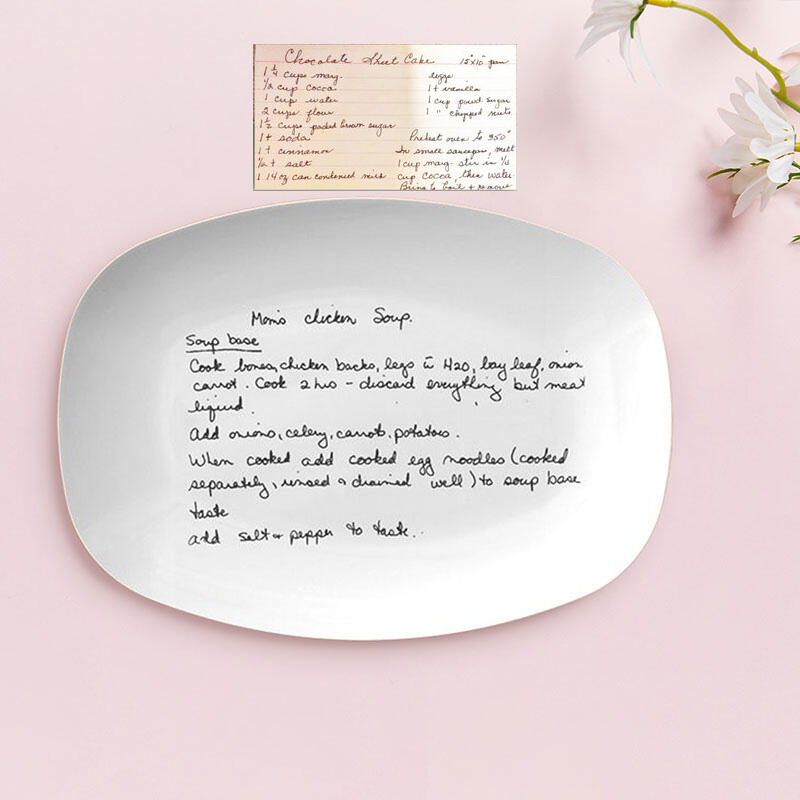 Chocolate Sheet Cake 15"x10" pan
1 1/4 cups marg.
1/2 cup cocoa
1 cup water
2 cups flour
1 1/2 cups packed brown sugar
1 t soda
1 t cinnamon
1/2 t salt
1 14 oz can condensed milk
eggs
1 t vanilla
1 cup powd. sugar
1 " chopped nuts
Preheat oven to 350°
In small saucepan, melt
1 cup marg. stir in 1/4
cup cocoa, then water.
Bring to boil + remove
Mom's chicken Soup.
Soup base
Cook bones, chicken backs, legs c̄ H2O, bay leaf, onion
carrot. Cook 2 hrs - discard everything but meat
liquid.
Add onions, celery, carrots, potatoes.
When cooked add cooked egg noodles (cooked
separately, rinsed & drained well) to soup base
taste
add salt + pepper to taste..